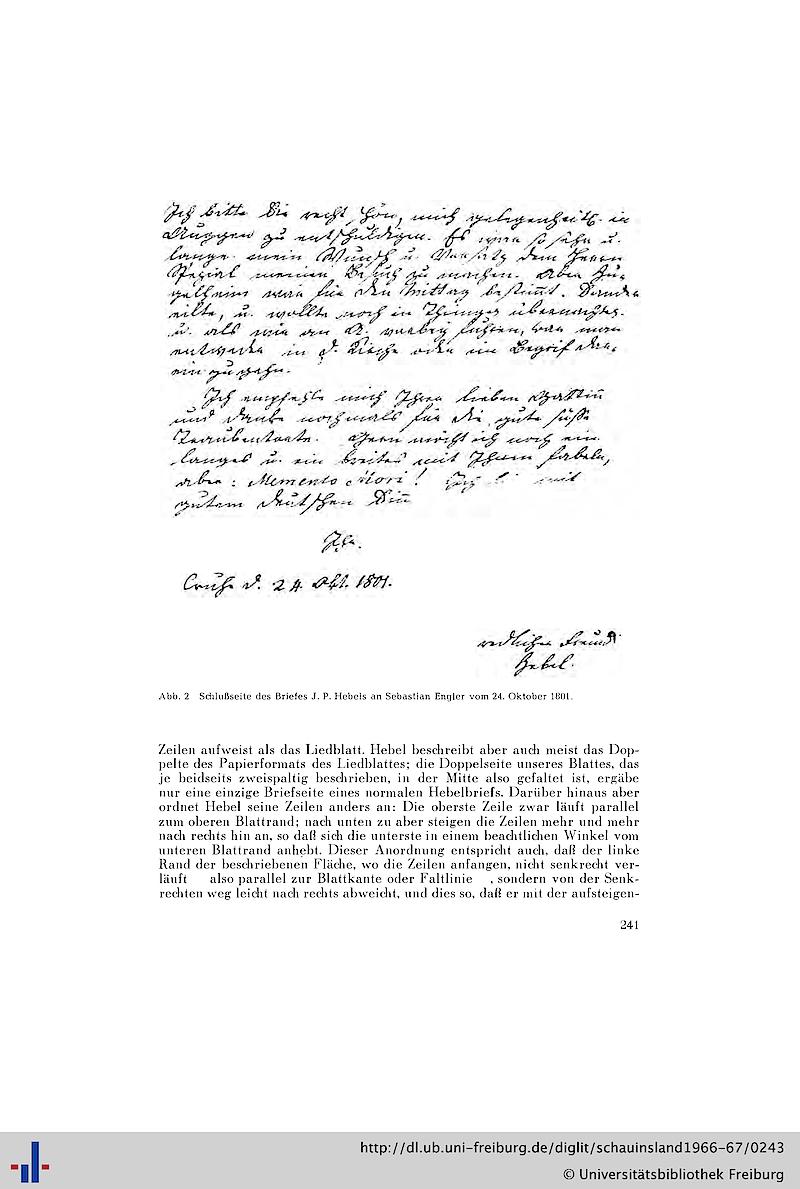 Ich bitte Sie recht schön, mich gelegenheitl. in
Muggen zu entschuldigen. Es war so sehr u.
lange mein Wunsch u. Vorsatz dem Herrn
Spezial meinen Besuch zu machen. Aber
war für den Mittag bestimmt.
eilte, u. wollte noch in übernachten.
u. als wir an fuhren, war man
entweder in d. Kirche oder im Begrif
ein zu gehn.
Ich empfehle mich Ihrer lieben Gattin
und danke nochmals für die gute süße
Traubentorte. Gern möcht ich noch ein
langes u. ein breites mit Ihnen fabeln,
aber: Memento Mori! mit
gutem deutschen Sinn
Ihr
Cruhe d. 24. Okt. 1801.
redlicher Freund
Hebel.
Abb. 2 Schlußseite des Briefes J. P. Hebels an Sebastian Engler vom 24. Oktober 1801.
Zeilen aufweist als das Liedblatt. Hebel beschreibt aber auch meist das Dop-
pelte des Papierformats des Liedblattes; die Doppelseite unseres Blattes, das
je beidseits zweispaltig beschrieben, in der Mitte also gefaltet ist, ergäbe
nur eine einzige Briefseite eines normalen Hebelbriefs. Darüber hinaus aber
ordnet Hebel seine Zeilen anders an: Die oberste Zeile zwar läuft parallel
zum oberen Blattrand; nach unten zu aber steigen die Zeilen mehr und mehr
nach rechts hin an, so daß sich die unterste in einem beachtlichen Winkel vom
unteren Blattrand anhebt. Dieser Anordnung entspricht auch, daß der linke
Rand der beschriebenen Fläche, wo die Zeilen anfangen, nicht senkrecht ver-
läuft also parallel zur Blattkante oder Faltlinie , sondern von der Senk-
rechten weg leicht nach rechts abweicht, und dies so, daß er mit der aufsteigen-
241
http://dl.ub.uni-freiburg.de/diglit/schauinsland1966-67/0243
© Universitätsbibliothek Freiburg